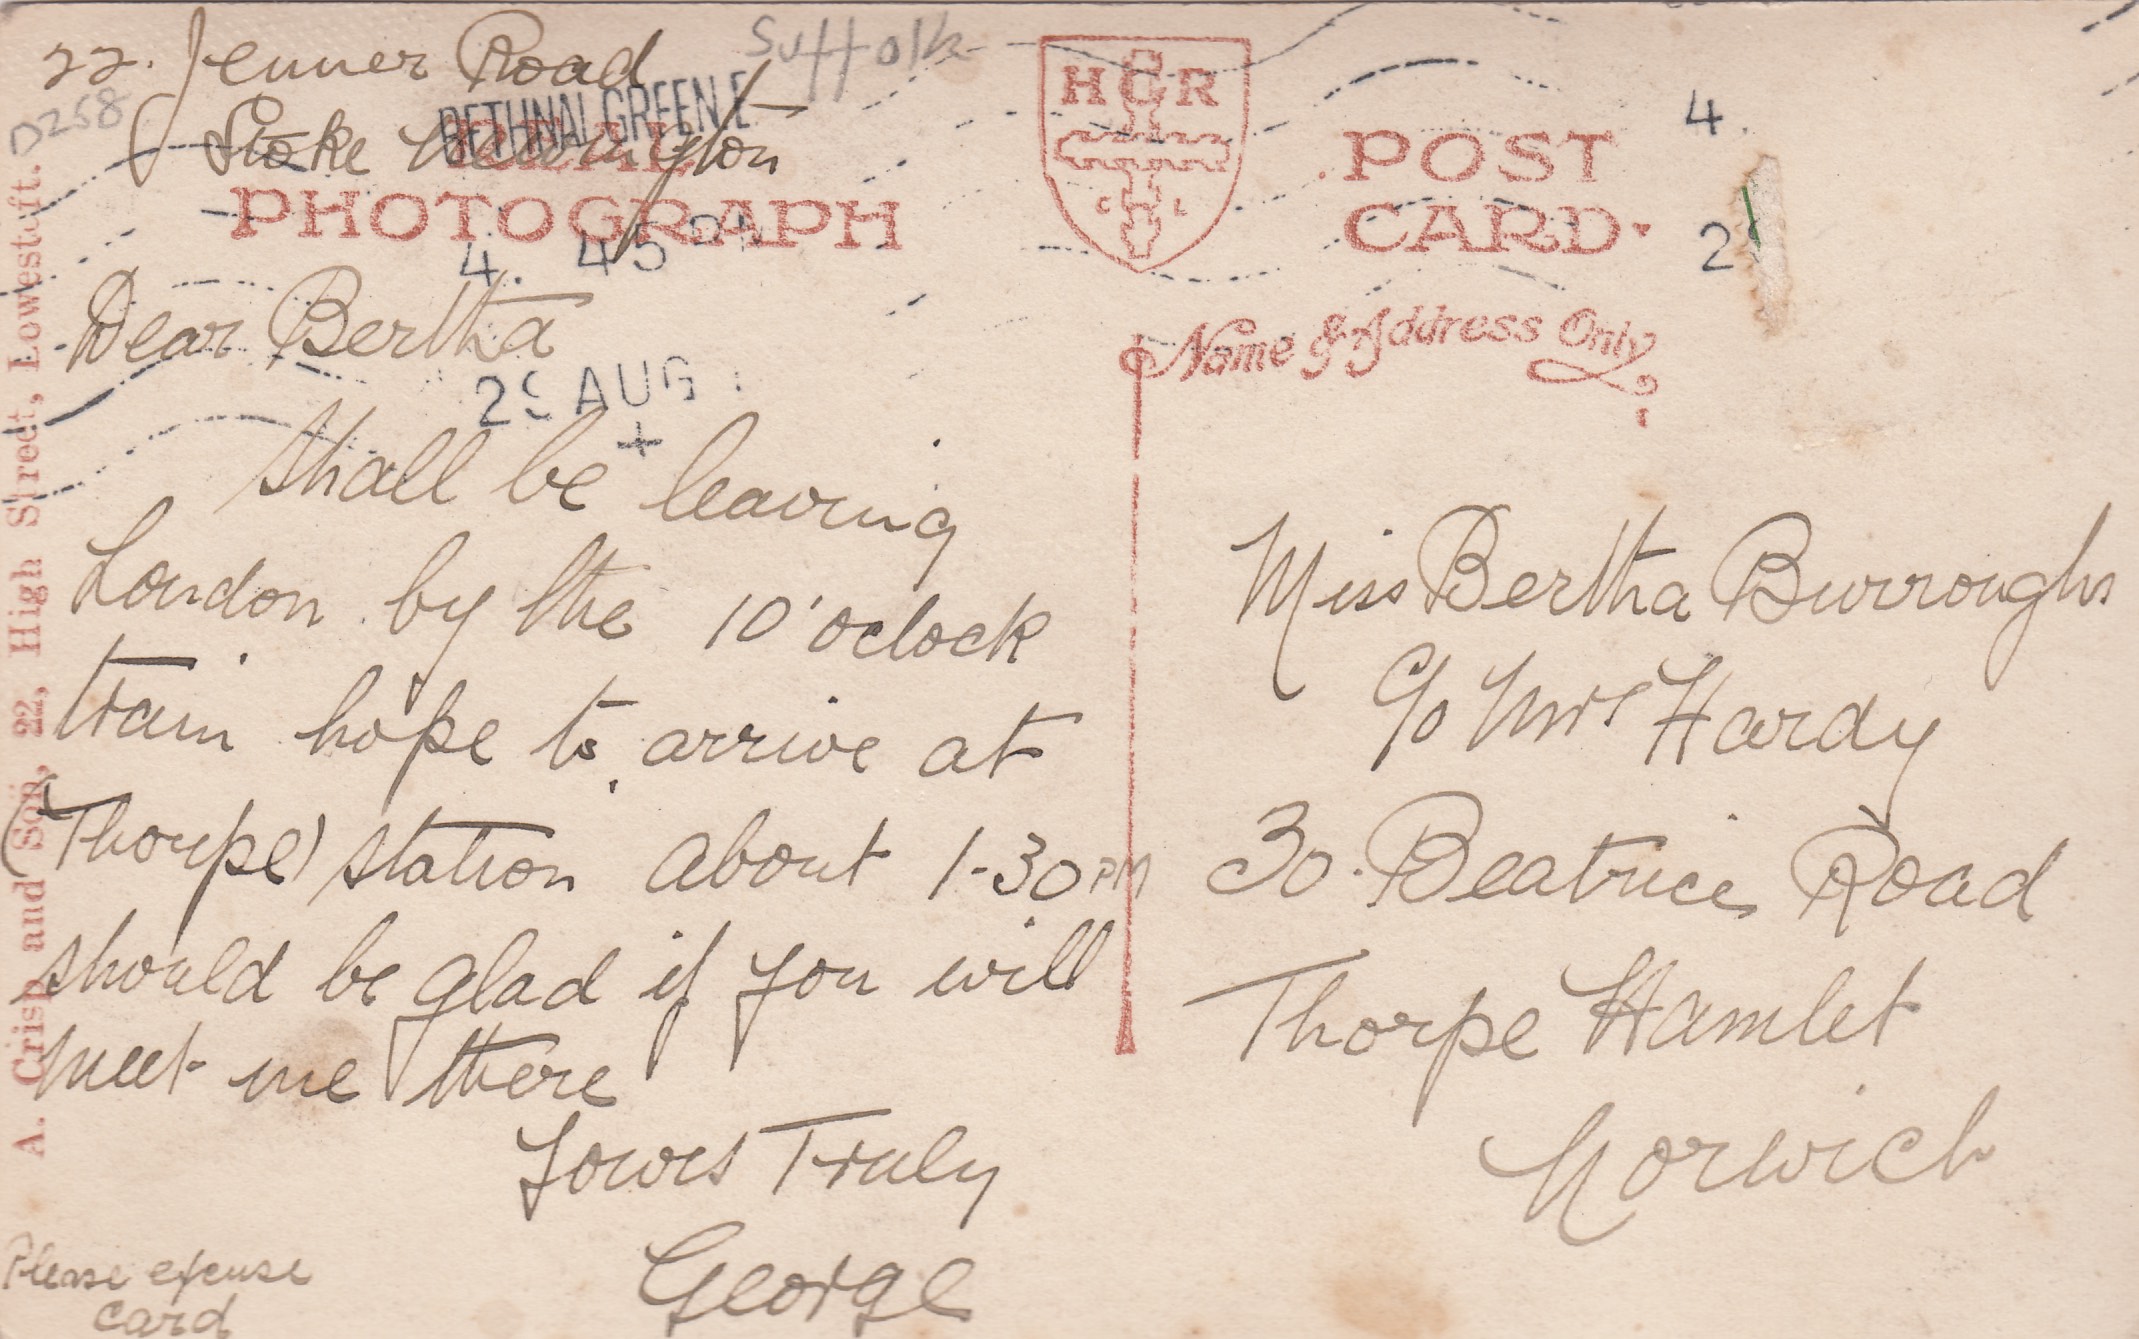 22. Jenner Road
Stoke Newington
Suffolk
D258
BETHNAL GREEN.E.
REAL
PHOTOGRAPH
4. 45 PM
29 AUG
Dear Bertha
shall be leaving
London by the 10'oclock
train hope to arrive at
(Thorpe) station about 1-30 PM
should be glad if you will
meet me there
Yours Truly
George
Please excuse
card
A. Crisp and Son, 22, High Street, Lowestoft.
H C R
C L
POST
CARD.
4.
2
Name & Address Only
Miss Bertha Burroughs
c/o Mrs Hardy
30. Beatrice Road
Thorpe Hamlet
Norwich